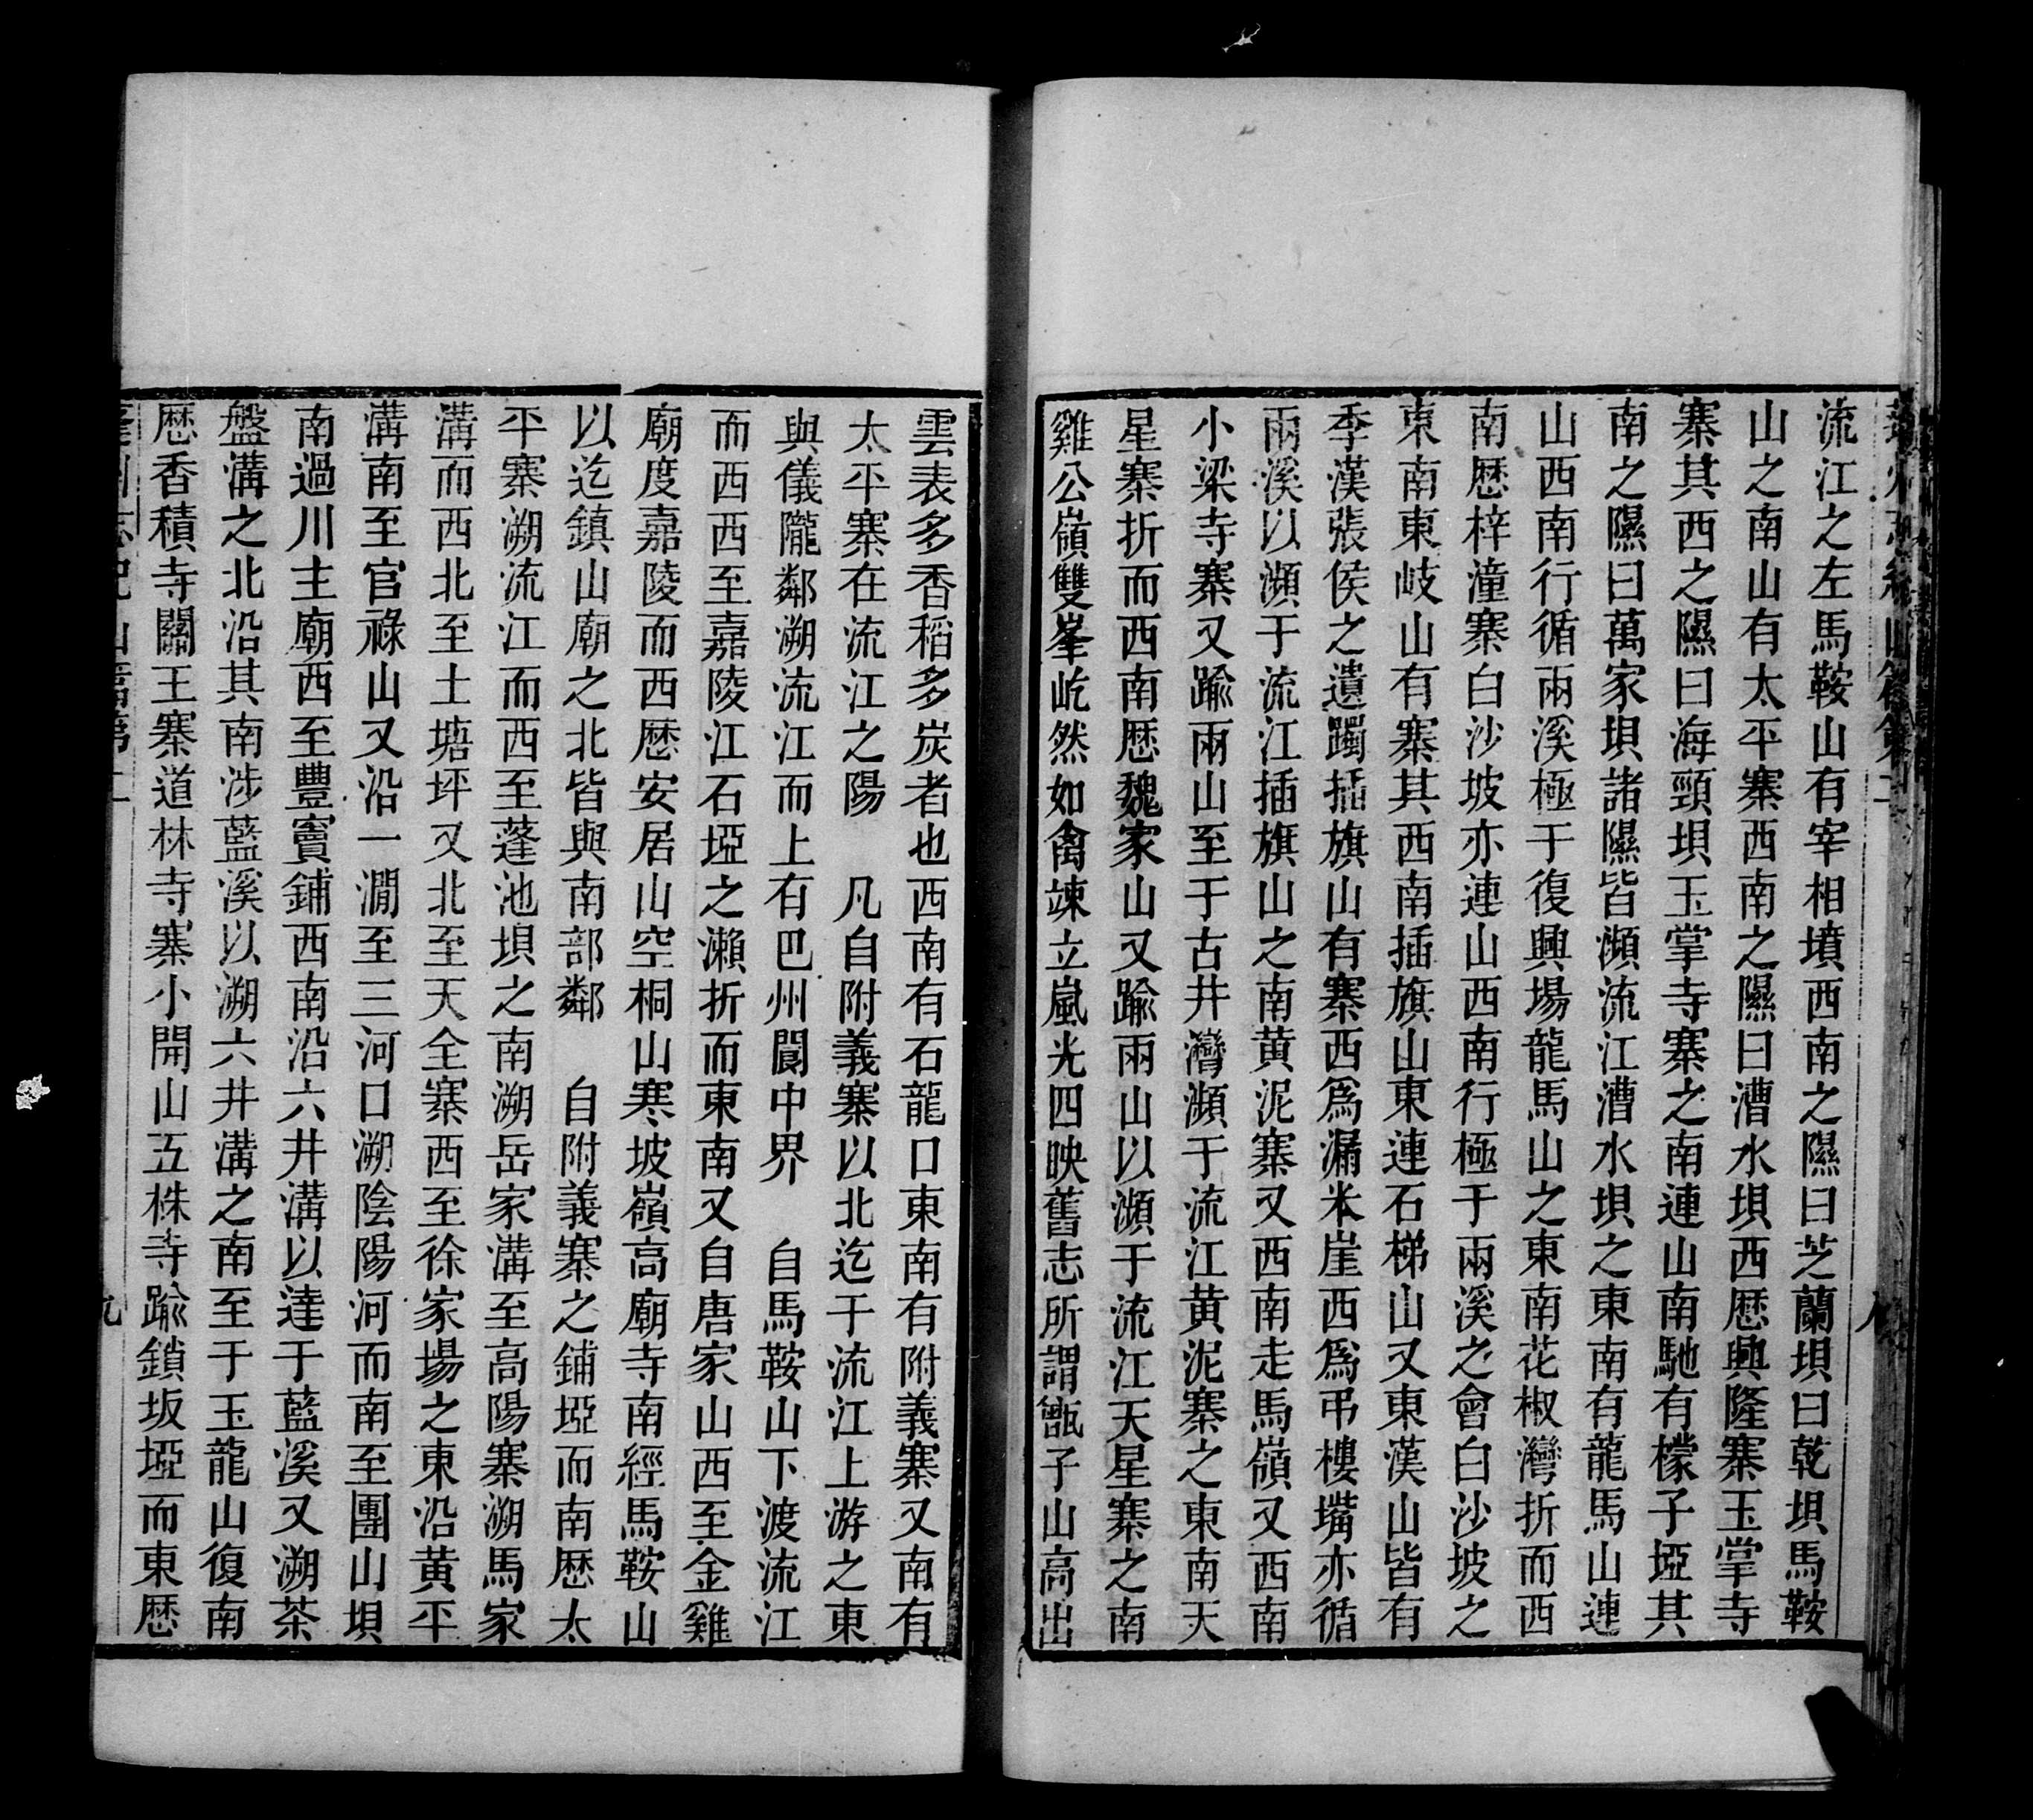 流江之左馬鞍山有宰相墳西南之隰曰芝蘭垻曰乾垻馬鞍
山之南山有太平寨西南之隰曰漕水垻西歴興隆寨玉掌寺
寨其西之隰曰海頸垻玉掌寺寨之南連山南馳有檬子埡其
南之隰曰萬家垻諸隰皆瀕流江漕水垻之東南有龍馬山連
山西南行循兩溪極于復興場龍馬山之東南花椒灣折而西
南歴梓潼寨白沙坡亦連山西南行極于兩溪之會白沙坡之
東南東岐山有寨其西南插旗山東連石梯山又東漢山皆有
季漢張侯之遺躅插旗山有寨西爲漏米崖西爲吊樓嘴亦循
兩溪以瀕于流江插旗山之南黄泥寨又西南走馬嶺又西南
小梁寺寨又踰兩山至于古井灣瀕于流江黄泥寨之東南天
星寨折而西南歴魏家山又踰兩山以瀕于流江天星寨之南
雞公嶺雙峯屹然如禽竦立嵐光四映舊志所謂甑子山高出
雲表多香稻多炭者也西南有石龍口東南有附義寨又南有
太平寨在流江之陽　凡自附義寨以北迄于流江上游之東
與儀隴鄰溯流江而上有巴州閬中界　自馬鞍山下渡流江
而西西至嘉陵江石埡之瀨折而東南又自唐家山西至金雞
廟度嘉陵而西歴安居山空桐山寒坡嶺高廟寺南經馬鞍山
以迄鎮山廟之北皆與南部鄰　自附義寨之鋪埡而南歴太
平寨溯流江而西至蓬池垻之南溯岳家溝至高陽寨溯馬家
溝而西北至土塘坪又北至天全寨西至徐家場之東沿黄平
溝南至官祿山又沿一澗至三河口溯陰陽河而南至團山垻
南過川主廟西至豐竇鋪西南沿六井溝以達于藍溪又溯茶
盤溝之北沿其南涉藍溪以溯六井溝之南至于玉龍山復南
歴香積寺關王寨道林寺寨小開山五株寺踰鎖坂埡而東歴